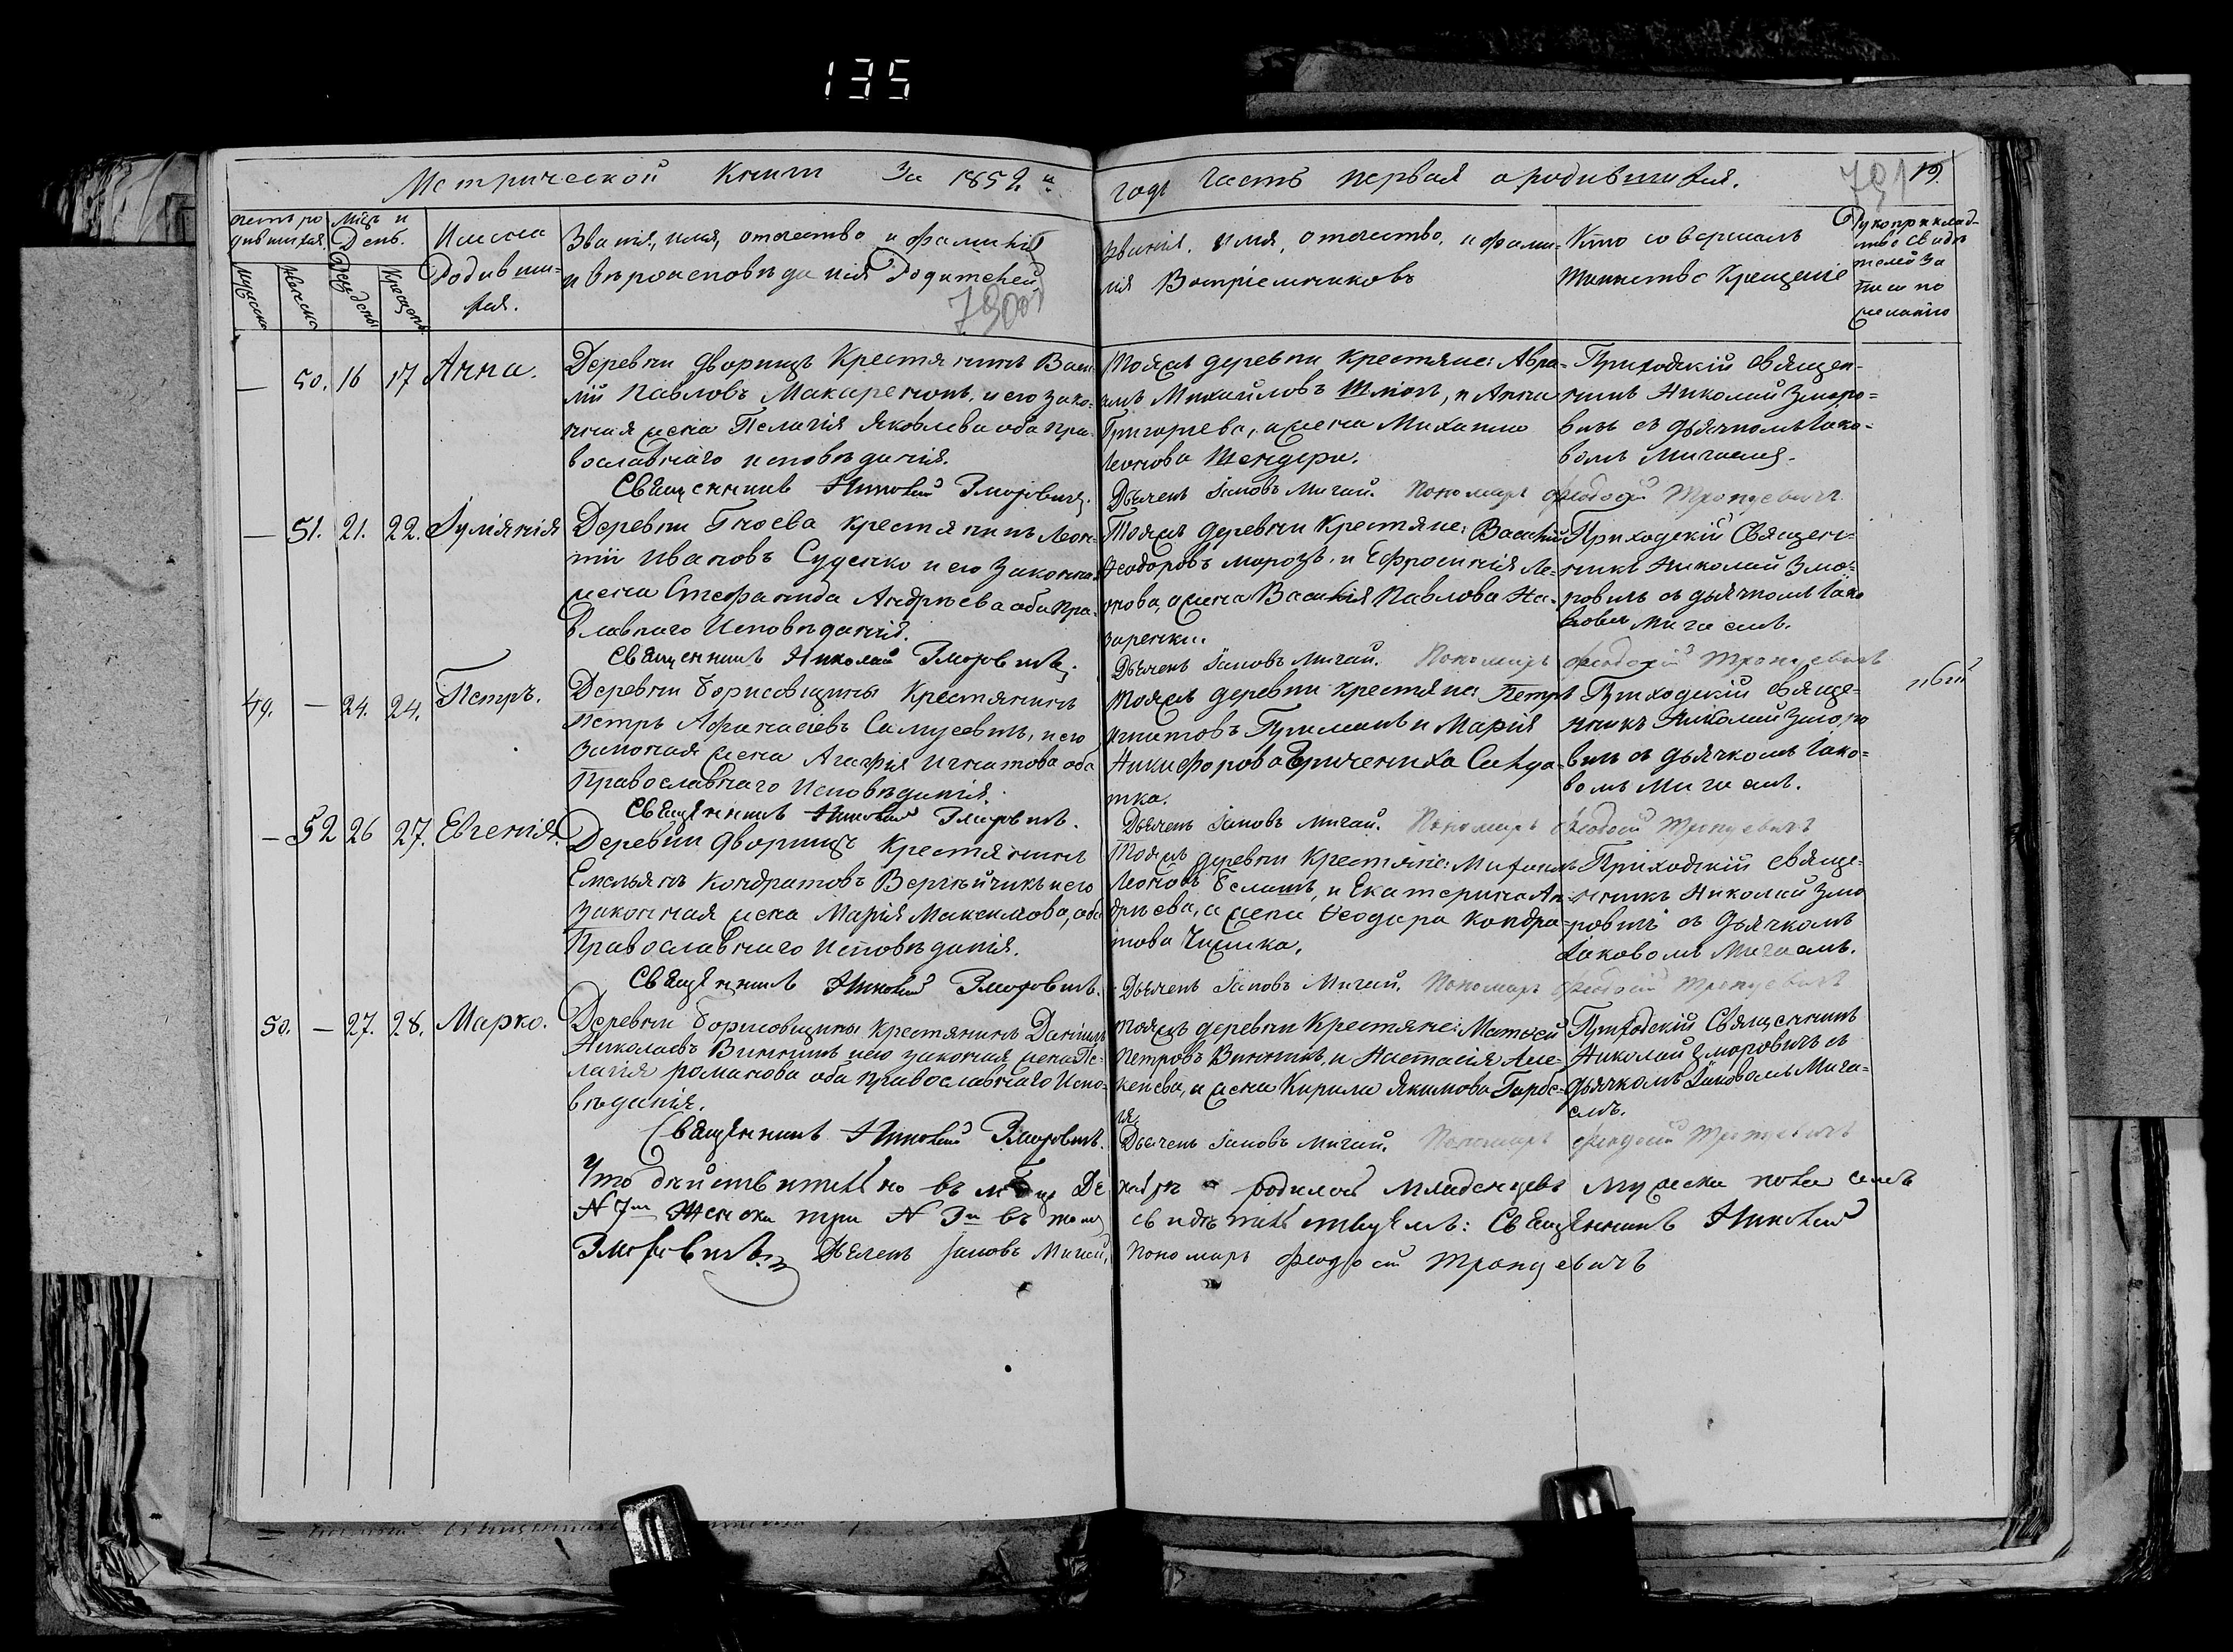 135
Метрической Книги За 1852 й
годъ Часть первая о родившихся.
791 19.
Мцъ и
День.
Имена
Родивши-
хся.
Званія, имя, отчество и фамилія
и вѣроисповѣданія Родителей
790
Званія, имя, отчество, и фами-
лія Воспріемниковъ
Кто совершалъ
Таинство Крещеніе
Рукоприклад-
ство свидѣ
телей за
писи по
желанію
— 50. 16 17 Анна.
Деревни Дворищъ Крестянинъ Васи-
лій Павловъ Макаренокъ, и его зако-
нная жена Пелагія Яковлева оба Пра-
вославнаго исповѣданія.
Священникъ Николай Зморовичъ.
Тояжъ деревни крестяне: Авра-
амъ Михайловъ и Анна
Григорьева, жена Михаила
Леонова
Дьячекъ Іаковъ Мигай. Пономаръ Феодосій
Приходскій священ-
никъ Николай Зморо-
вичъ съ дьячкомъ Іако-
вомъ Мигаемъ.
— 51. 21. 22. Іуліянія
Деревни Гноева крестянинъ Леон-
тій Ивановъ Суденко и его законна
жена Стефанида Андреева оба Пра-
влавнаго Исповѣданія.
Священникъ Николай Зморовичъ.
Тояжъ деревни Крестяне: Василій
Ѳеодоровъ морозъ, и Ефросинія Ле-
онова, жена Василія Павлова На-
заренки.
Дьячекъ Іаковъ Мигай. Пономаръ Феодосій
Приходскій Священ-
никъ Николай Змо-
ровичъ съ дьячкомъ Іако
вомъ Мигаемъ.
49. — 24. 24. Петръ.
Деревни Борисовщины Крестянинъ
Петръ Афанасіевъ Самусевичъ, и его
законая жена Агафія Игнатова оба
Православнаго Исповѣданія.
Священникъ Николай Зморовичъ.
Тояжъ деревни крестяне: Петръ
Игнатовъ и Марія
Никифорова
тка.
Дьячекъ Іаковъ Мигай. Пономаръ Феодосій
Приходскій свяще-
нникъ Николай Зморо
вичъ съ дьячкомъ Іако-
вомъ Мигаемъ.
— 52 26 27. Евгенія.
Деревни Дворищъ Крестянинъ
Емельянъ Кондратовъ и его
законная жена Марія Максимова, оба
Православнаго Исповѣданія.
Священникъ Николай Зморовичъ.
Тояжъ деревни Крестяне: Михаилъ
Леоновъ и Екатерина Ан-
дреева, жена Ѳеодора Кондра-
това Чижика.
Дьячекъ Іаковъ Мигай. Пономаръ Феодосій
Приходскій свяще-
нникъ Николай Змо
ровичъ съ Дьячкомъ
Іаковомъ Мигаемъ.
50. — 27. 28. Марко.
Деревни Борисовщины Крестянинъ Даніилъ
Николаевъ Винникъ и его законая жена Пе-
лагія романова оба православнаго Испо-
вѣданія.
Священникъ Николай Зморовичъ.
Тояжъ деревни Крестяне: Матвей
Петровъ Винникъ, и Настасія Але-
ксѣева, жена Кирила Якимова
Дьячекъ Іаковъ Мигай. Пономаръ Феодосій
Приходскій Священникъ
Николай Зморовичъ съ
дьячкомъ Іаковомъ Мига-
емъ.
Что дѣйствительно въ Де
кабрѣ родилось младенцевъ мужеска пола семь
N 7м Женска три N 3й въ томъ
свидѣтельствуемъ: Священникъ Николай
Зморовичъ Дьячекъ Іаковъ Мигай,
Пономаръ Феодосій